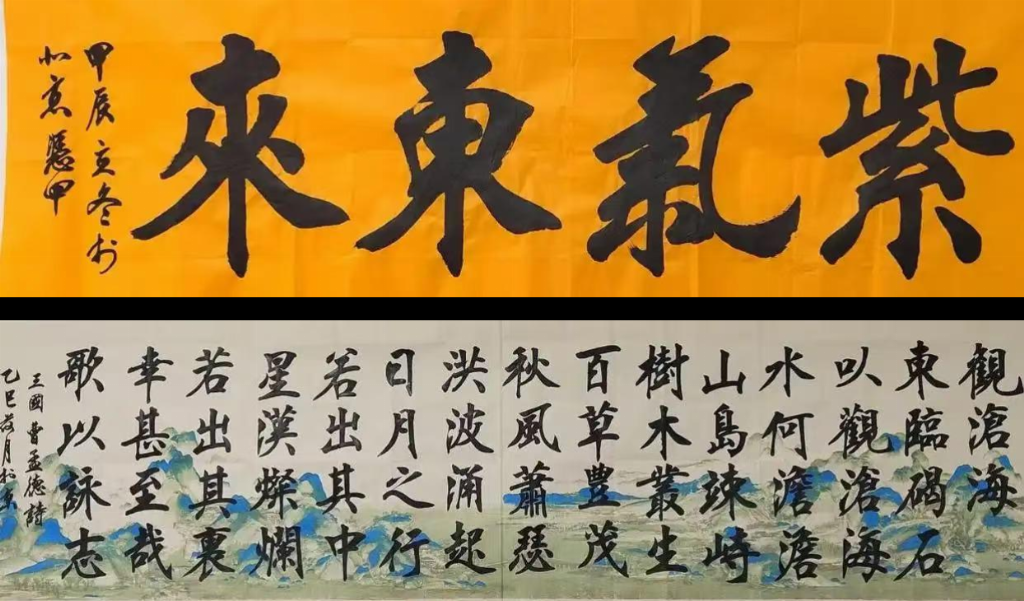 紫氣東來
甲辰亥冬於
北京
觀滄海
東臨碣石
以觀滄海
水何澹澹
山島竦峙
樹木叢生
百草豊茂
秋風蕭瑟
洪波涌起
日月之行
若出其中
星漢燦爛
若出其裏
幸甚至哉
歌以詠志
三國曹孟德詩
乙巳